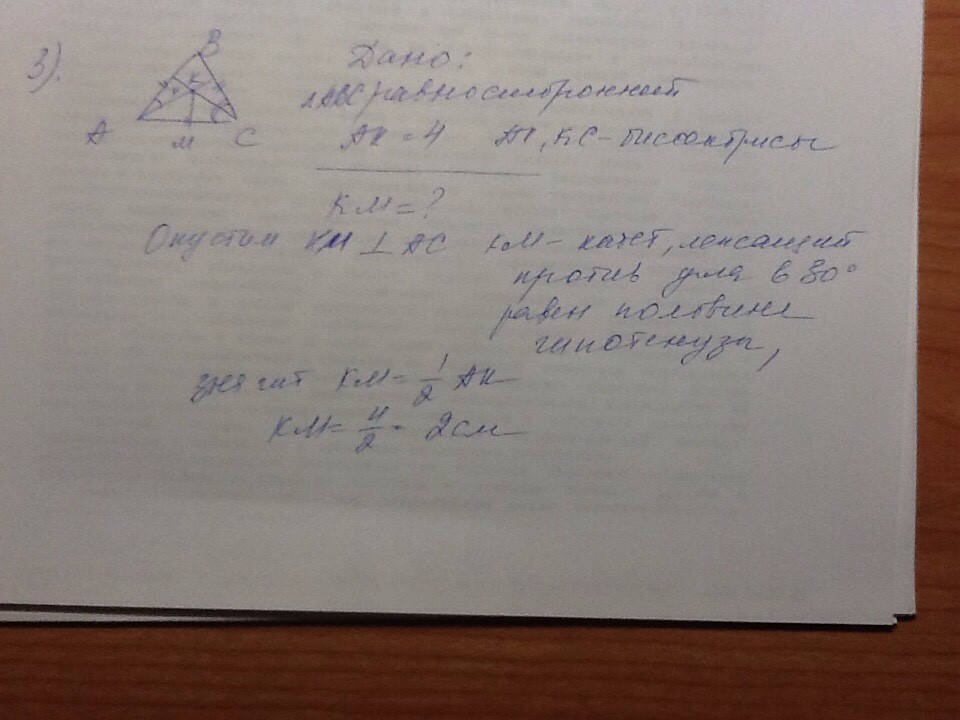 3).
B
K
A
M
C
Дано:
△ABC равносторонний
AK = 4 AK, KC - биссектрисы
KM = ?
Опустим KM ⊥ AC KM - катет, лежащий
против угла в 30°
равен половине
гипотенузы,
значит KM = 1/2 AK
KM = 4/2 = 2 см